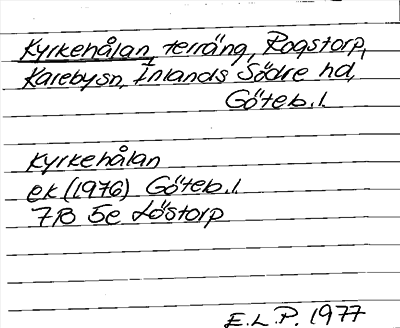 Kyrkehålan, terräng, Rogstorp,
Karebysn, Inlands Södre hd,
Göteb. l.
Kyrkehålan
ek (1976) Göteb. l
7B 5e Löstorp
E.L.P. 1977